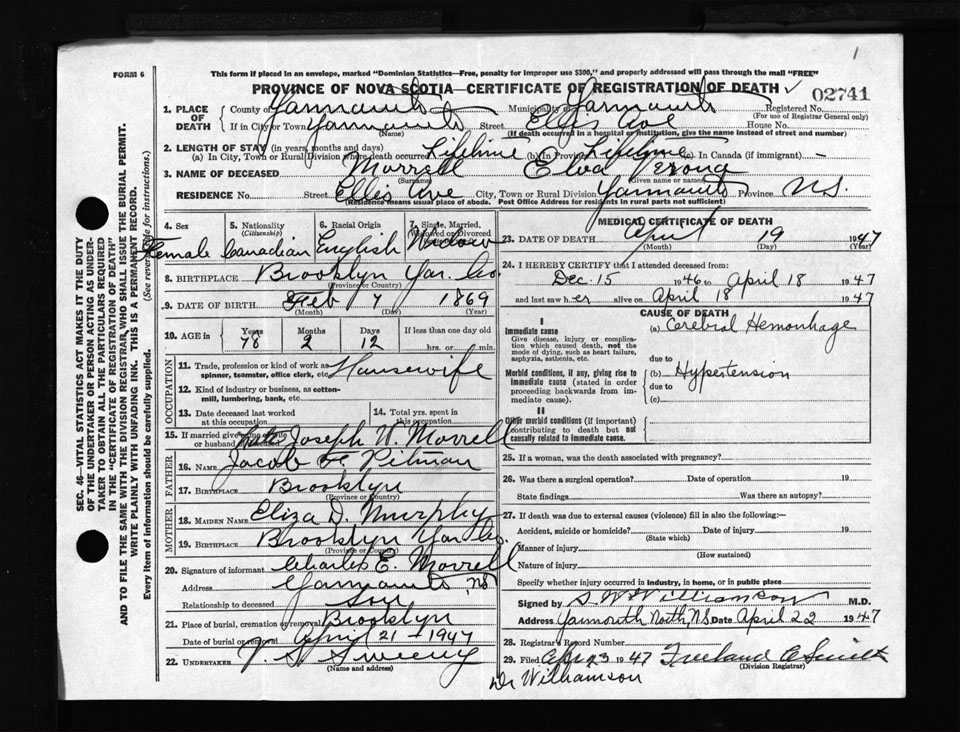 1
FORM 6
This form if placed in an envelope, marked "Dominion Statistics—Free, penalty for improper use $300," and properly addressed will pass through the mail "FREE"
PROVINCE OF NOVA SCOTIA—CERTIFICATE OF REGISTRATION OF DEATH
02741
1. PLACE OF DEATH
County of Yarmouth Municipality of Yarmouth Registered No.
(For use of Registrar General only)
If in City or Town Yarmouth Street Ellis Ave House No.
(Name) (If death occurred in a hospital or institution, give the name instead of street and number)
2. LENGTH OF STAY (in years, months and days)
(a) In City, Town or Rural Division where death occurred Lifetime (b) In Province Lifetime (c) In Canada (if immigrant) -
3. NAME OF DECEASED Morrell Elva
(Surname) (Given name or names)
RESIDENCE No. Street Ellis Ave City, Town or Rural Division Yarmouth Province N.S.
(Residence means usual place of abode. Post Office Address for residents in rural parts not sufficient)
4. Sex Female
5. Nationality (Citizenship) Canadian
6. Racial Origin English
7. Single, Married, Widowed or Divorced Widow
8. BIRTHPLACE Brooklyn Yar. Co.
(Province or Country)
9. DATE OF BIRTH Feb 7 1869
(Month) (Day) (Year)
10. AGE in Years 78 Months 2 Days 12 If less than one day old hrs. or min.
OCCUPATION
11. Trade, profession or kind of work as spinner, teamster, office clerk, etc. Housewife
12. Kind of industry or business, as cotton-mill, lumbering, bank, etc.
13. Date deceased last worked at this occupation
14. Total yrs. spent in this occupation
15. If married give name of wife or husband of deceased Joseph W. Morrell
FATHER
16. NAME Jacob Pitman
17. BIRTHPLACE Brooklyn
(Province or Country)
MOTHER
18. MAIDEN NAME Eliza D. Murphy
19. BIRTHPLACE Brooklyn Yar. Co.
(Province or Country)
20. Signature of informant Charles E. Morrell
Address Yarmouth, NS
Relationship to deceased Son
21. Place of burial, cremation or removal Brooklyn
Date of burial or removal April 21 - 1947
22. UNDERTAKER V. S. Sweeny
(Name and address)
MEDICAL CERTIFICATE OF DEATH
23. DATE OF DEATH April 19 1947
(Month) (Day) (Year)
24. I HEREBY CERTIFY that I attended deceased from:
Dec. 15 1946 to April 18 1947
and last saw her alive on April 18 1947
CAUSE OF DEATH
I
Immediate cause (a) Cerebral Hemorrhage
Give disease, injury or complication which caused death, not the mode of dying, such as heart failure, asphyxia, asthenia, etc.
due to
Morbid conditions, if any, giving rise to immediate cause (stated in order proceeding backwards from immediate cause).
(b) Hypertension
due to
(c)
II
Other morbid conditions (if important) contributing to death but not causally related to immediate cause.
25. If a woman, was the death associated with pregnancy?
26. Was there a surgical operation? Date of operation 19
State findings Was there an autopsy?
27. If death was due to external causes (violence) fill in also the following:—
Accident, suicide or homicide? Date of injury 19
(State which)
Manner of injury
(How sustained)
Nature of injury
Specify whether injury occurred in industry, in home, or in public place
Signed by S. W. Williamson M.D.
Address Yarmouth North, N.S. Date April 22 1947
28. Registrar's Record Number
29. Filed Apr 23 1947
(Division Registrar)
Dr Williamson
SEC. 46—VITAL STATISTICS ACT MAKES IT THE DUTY
OF THE UNDERTAKER OR PERSON ACTING AS UNDER-
TAKER TO OBTAIN ALL THE PARTICULARS REQUIRED
IN THE "CERTIFICATE OF REGISTRATION OF DEATH"
AND TO FILE THE SAME WITH THE DIVISION REGISTRAR, WHO SHALL ISSUE THE BURIAL PERMIT.
WRITE PLAINLY WITH UNFADING INK. THIS IS A PERMANENT RECORD.
Every item of information should be carefully supplied. (See reverse side for instructions.)